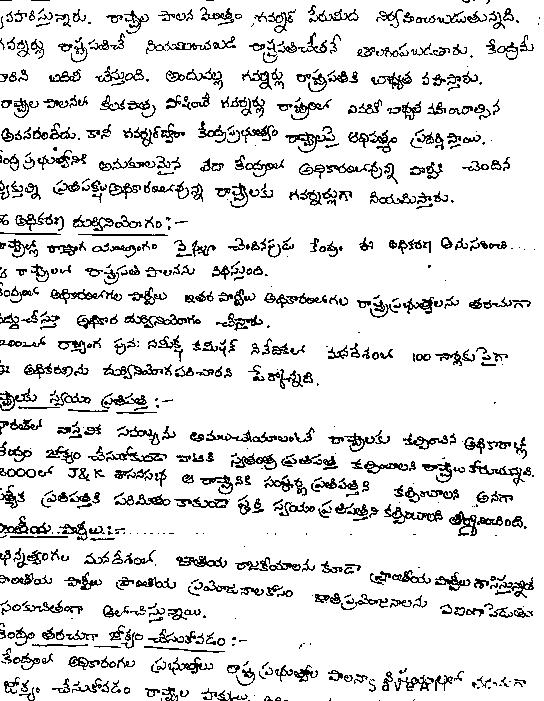 వ్యవహరిస్తున్నారు. రాష్ట్రాల పాలన మొత్తం గవర్నర్ పేరుమీద నిర్వహించబడుతున్నది.
గవర్నర్లు రాష్ట్రపతిచే నియమించబడి రాష్ట్రపతిచేతనే తొలగింపబడతారు. కేంద్రమే
వారిని బదిలీ చేస్తుంది. అందువల్ల గవర్నర్లు రాష్ట్రపతికి బాధ్యత వహిస్తారు.
రాష్ట్రాల పాలనలో కీలకపాత్ర పోషించే గవర్నర్లు రాష్ట్రాలలో ఎవరికీ బాధ్యత వహించాల్సిన
అవసరంలేదు. కానీ గవర్నర్‌ద్వారా కేంద్రప్రభుత్వం రాష్ట్రాలపై ఆధిపత్యం ప్రదర్శిస్తాయి.
కేంద్ర ప్రభుత్వానికి అనుకూలమైన లేదా కేంద్రంలో అధికారంలోవున్న పార్టీకి చెందిన
వ్యక్తుల్ని ప్రతిపక్షం అధికారంలోవున్న రాష్ట్రాలకు గవర్నర్లుగా నియమిస్తారు.
అధికరణ దుర్వినియోగం :-
రాష్ట్రాల్లో రాజ్యాంగ యంత్రాంగం వైఫల్యం చెందినపుడు కేంద్రం ఈ అధికరణ అనుసరించి....
రాష్ట్రాలలో రాష్ట్రపతి పాలనను విధిస్తుంది.
కేంద్రంలో అధికారంగల పార్టీలు ఇతర పార్టీలు అధికారంలోగల రాష్ట్రప్రభుత్వాలను తరచుగా
రద్దుచేస్తూ అధికార దుర్వినియోగం చేస్తారు.
రాజ్యాంగ పునః సమీక్ష కమిషన్ నివేదికలో మనదేశంలో 100 సార్లకు పైగా
ఈ అధికరణను దుర్వినియోగపరిచారని పేర్కొన్నది.
రాష్ట్రాలకు స్వయం ప్రతిపత్తి :-
భారత్‌లో వాస్తవిక సమాఖ్యను అమలుచేయాలంటే రాష్ట్రాలకు కల్పించిన అధికారాల్లో
కేంద్రం జోక్యం చేసుకోకుండా వాటికి స్వతంత్ర ప్రతిపత్తి కల్పించాలని రాష్ట్రాలు కోరుతున్నవి.
2000లో J&K శాసనసభ ఆ రాష్ట్రానికి సంపూర్ణ ప్రతిపత్తిని కల్పించాలి అనగా
ప్రత్యేక ప్రతిపత్తికి పరిమితం కాకుండా పూర్తి స్వయం ప్రతిపత్తిని కల్పించాలని తీర్మానించింది.
ప్రాంతీయ పార్టీలు:-
భిన్నత్వంగల మనదేశంలో జాతీయ రాజకీయాలను కూడా ప్రాంతీయ పార్టీలు శాసిస్తున్నాయి
ప్రాంతీయ పార్టీలు ప్రాంతీయ ప్రయోజనాలకోసం జాతీప్రయోజనాలను పణంగాపెడుతూ
సంకుచితంగా ఆలోచిస్తున్నాయి.
కేంద్రం తరచుగా జోక్యం చేసుకోవడం :-
కేంద్రంలో అధికారంగల ప్రభుత్వాలు రాష్ట్ర ప్రభుత్వాల పాలనా విషయాలలో తరచుగా
జోక్యం చేసుకోవడం రాష్ట్రాల హక్కులు